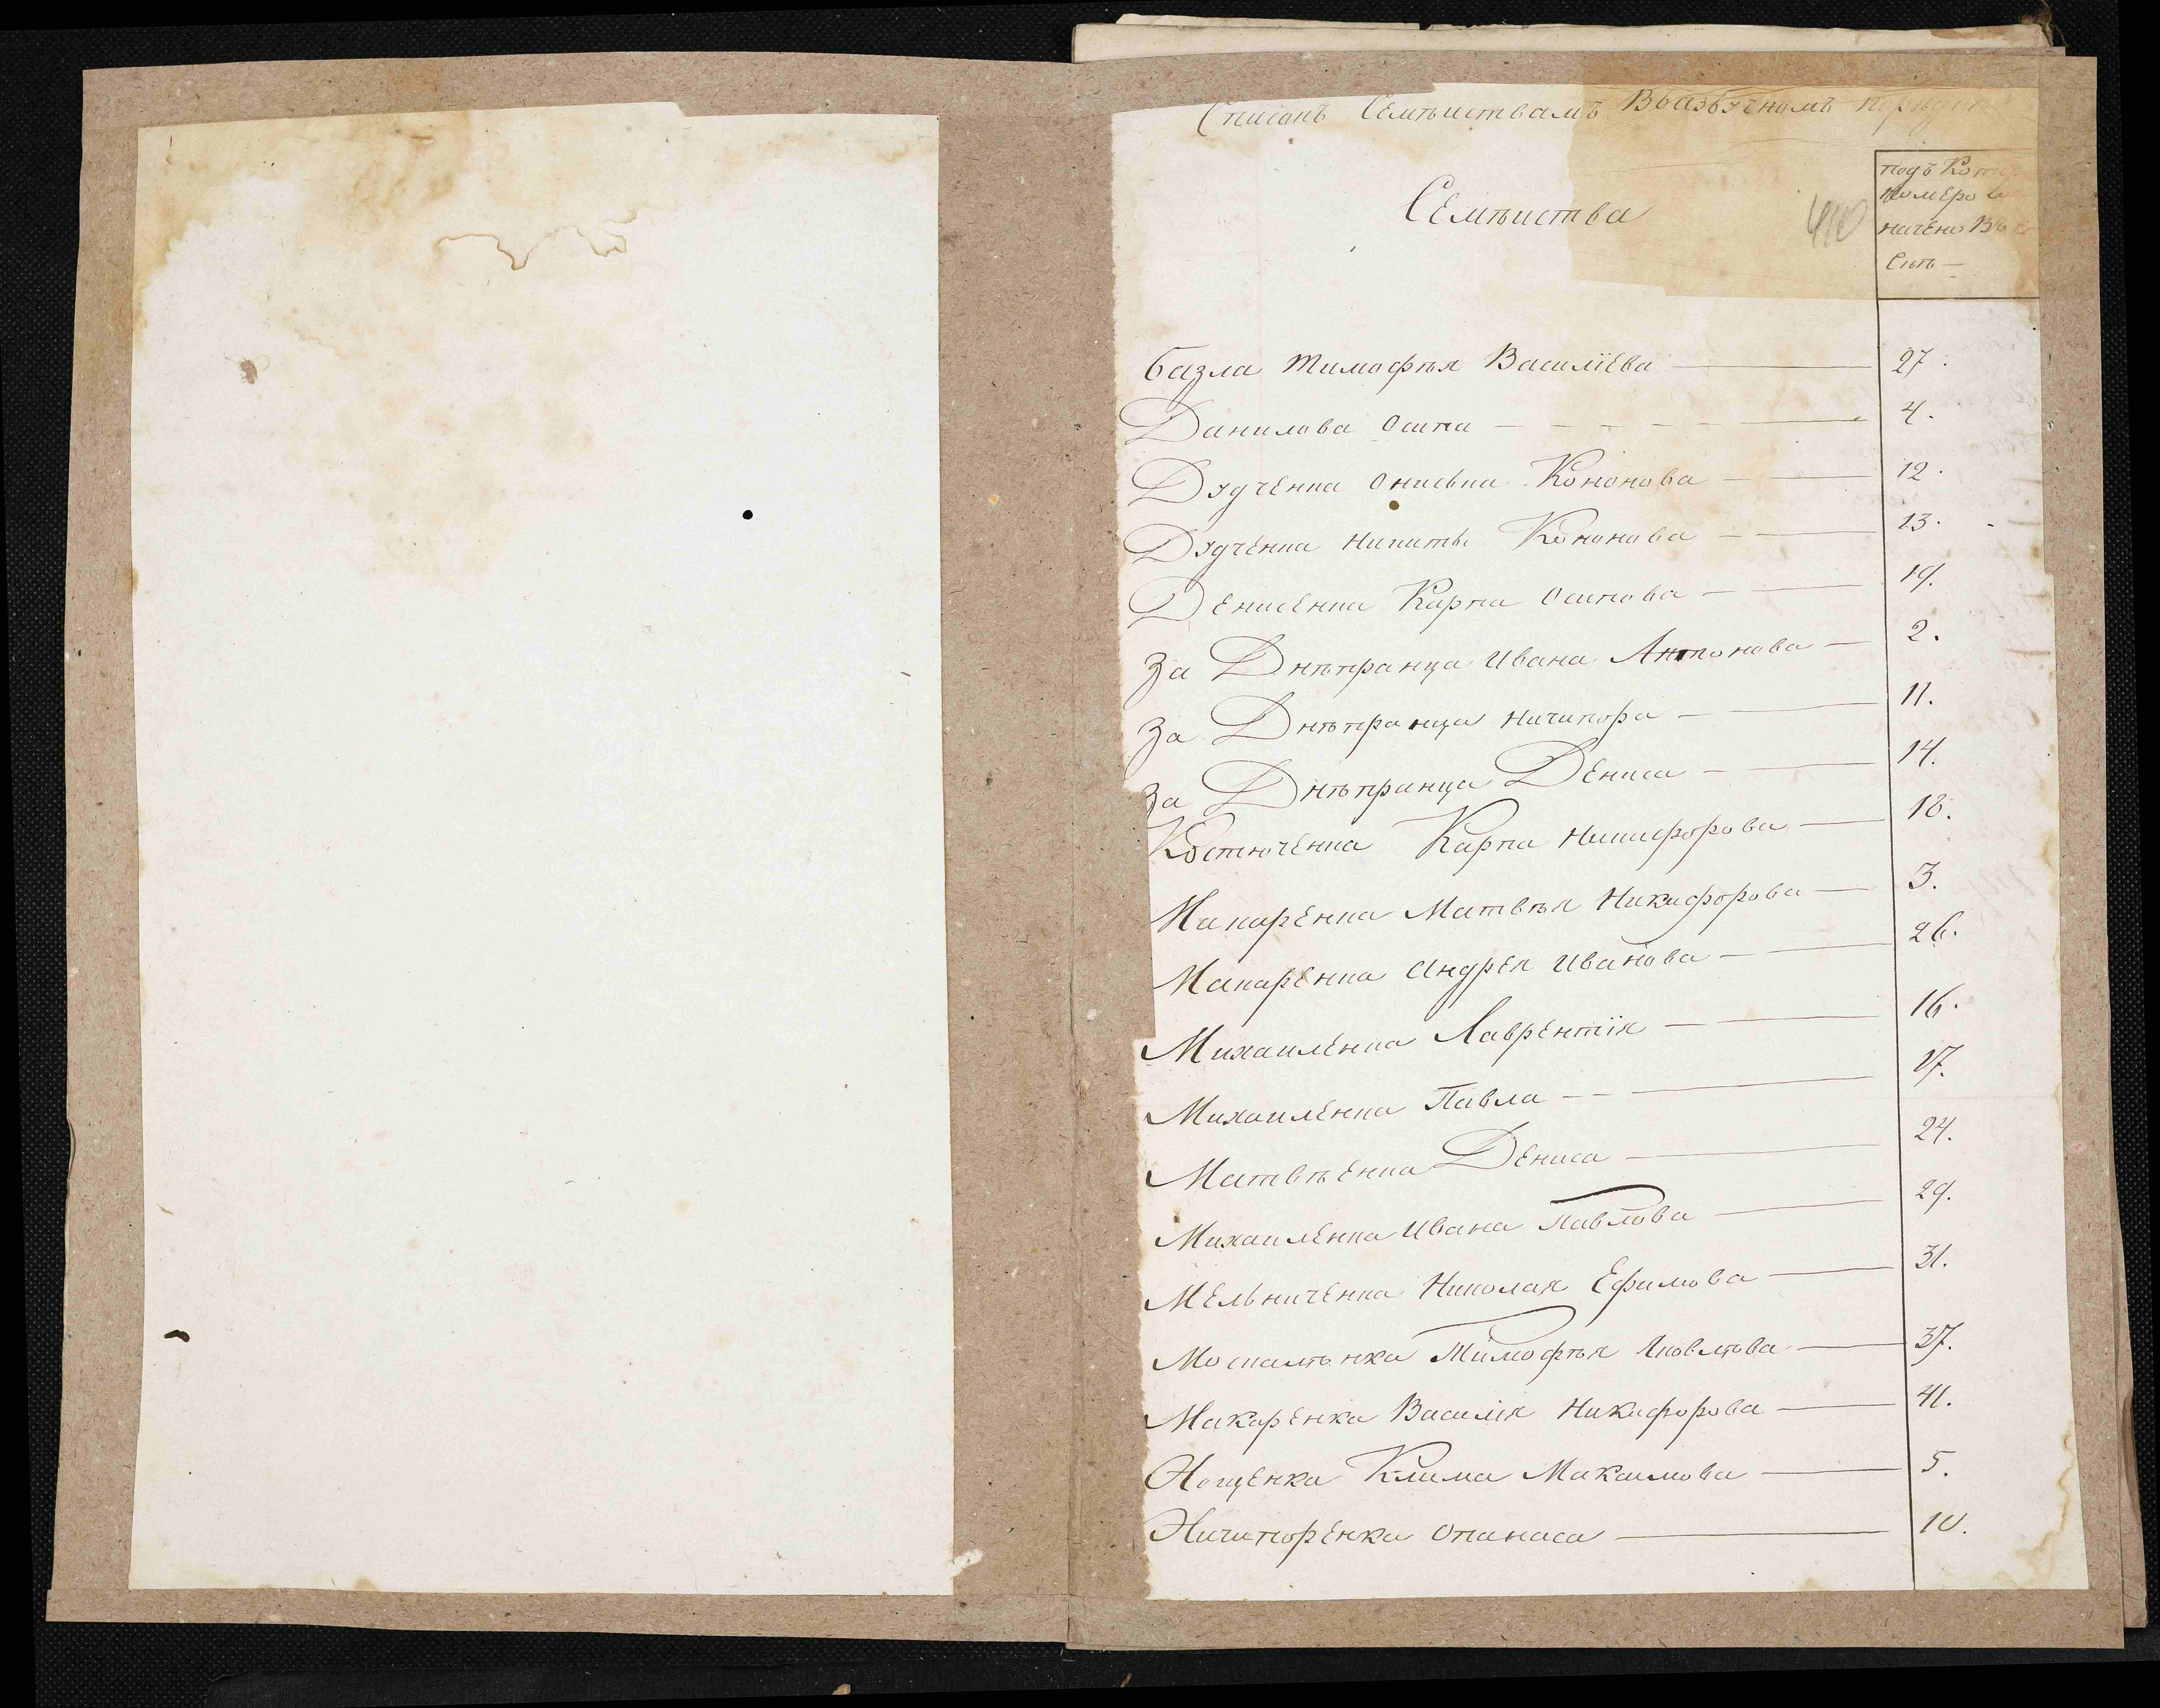 Списокъ Семѣиствамъ Въазбучномъ порядке
Семѣиства
440
подъ Кото
номеро
начено Въ
Сѣть —
базла тимофѣя Василіева 27.
Данилова Осипа 4.
Дудченка Ониська Кононова 12.
Дудченка никиты Кононова 13.
Денисенка Карпа Осипова 19.
за Днѣпранца Ивана Антонова 2.
за Днѣпранца ничипора 11.
за Днѣпранца Дениса 14.
Костюченка Карпа никифорова 18.
Макаренка Матвѣя Никифорова 3.
Макаренка Андрея Иванова 26.
Михаиленка Лаврентія 16.
Михаиленка Павла 17.
Матвѣенка Дениса 24.
Михаиленка Ивана Павлова 29.
Мельниченка Николая Ефимова 31.
Москалѣнка Тимофѣя Яковлѣва 37.
Макаренка Василія Никифорова 41.
Нощенка Клима Максимова 5.
Ничипоренка Опанаса 10.